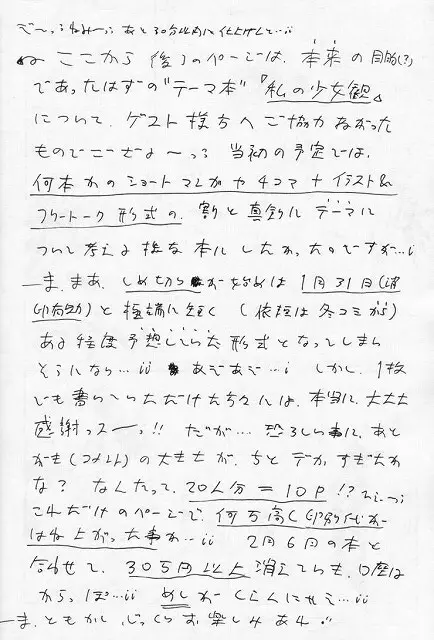 で〜っうねみ〜っ あと30分以内に仕上げんと…ii
ここから後ろのページは、本来の目的(?)
であったはずの"テーマ本"『私の少女観』
について、ゲスト様方へご協力ねがった
ものでございますよ〜っっ 当初の予定では、
何本かのショートマンガや4コマ＋イラスト&
フリートーク形式の、割と真剣にテーマに
ついて考える様な本にしたかったのですが…i
ま、まあ、しめ切りが始めは1月31日(消
印有効)と極端に短く(依頼は冬コミから)
ある程度予想していた形式となってしまい
そうになら…ii あぞあぞ…i しかし、1枚
でも書いていただけた方々には、本当に、大大大
感謝っスーっ!! だが…恐ろしい事に、あと
がき(コメント)の大きさが、ちとデカすぎたか
な? なんたって、20人分=10P!?
これだけのページで、何万高く印刷代が
はね上がった事か…ii 2月6日の本と
合わせて、30万円以上消えてらぁ、口座は
からっぽ…ii めしが くらんにゃえ…ii
ま、ともかく、じっくりお楽しみあれ